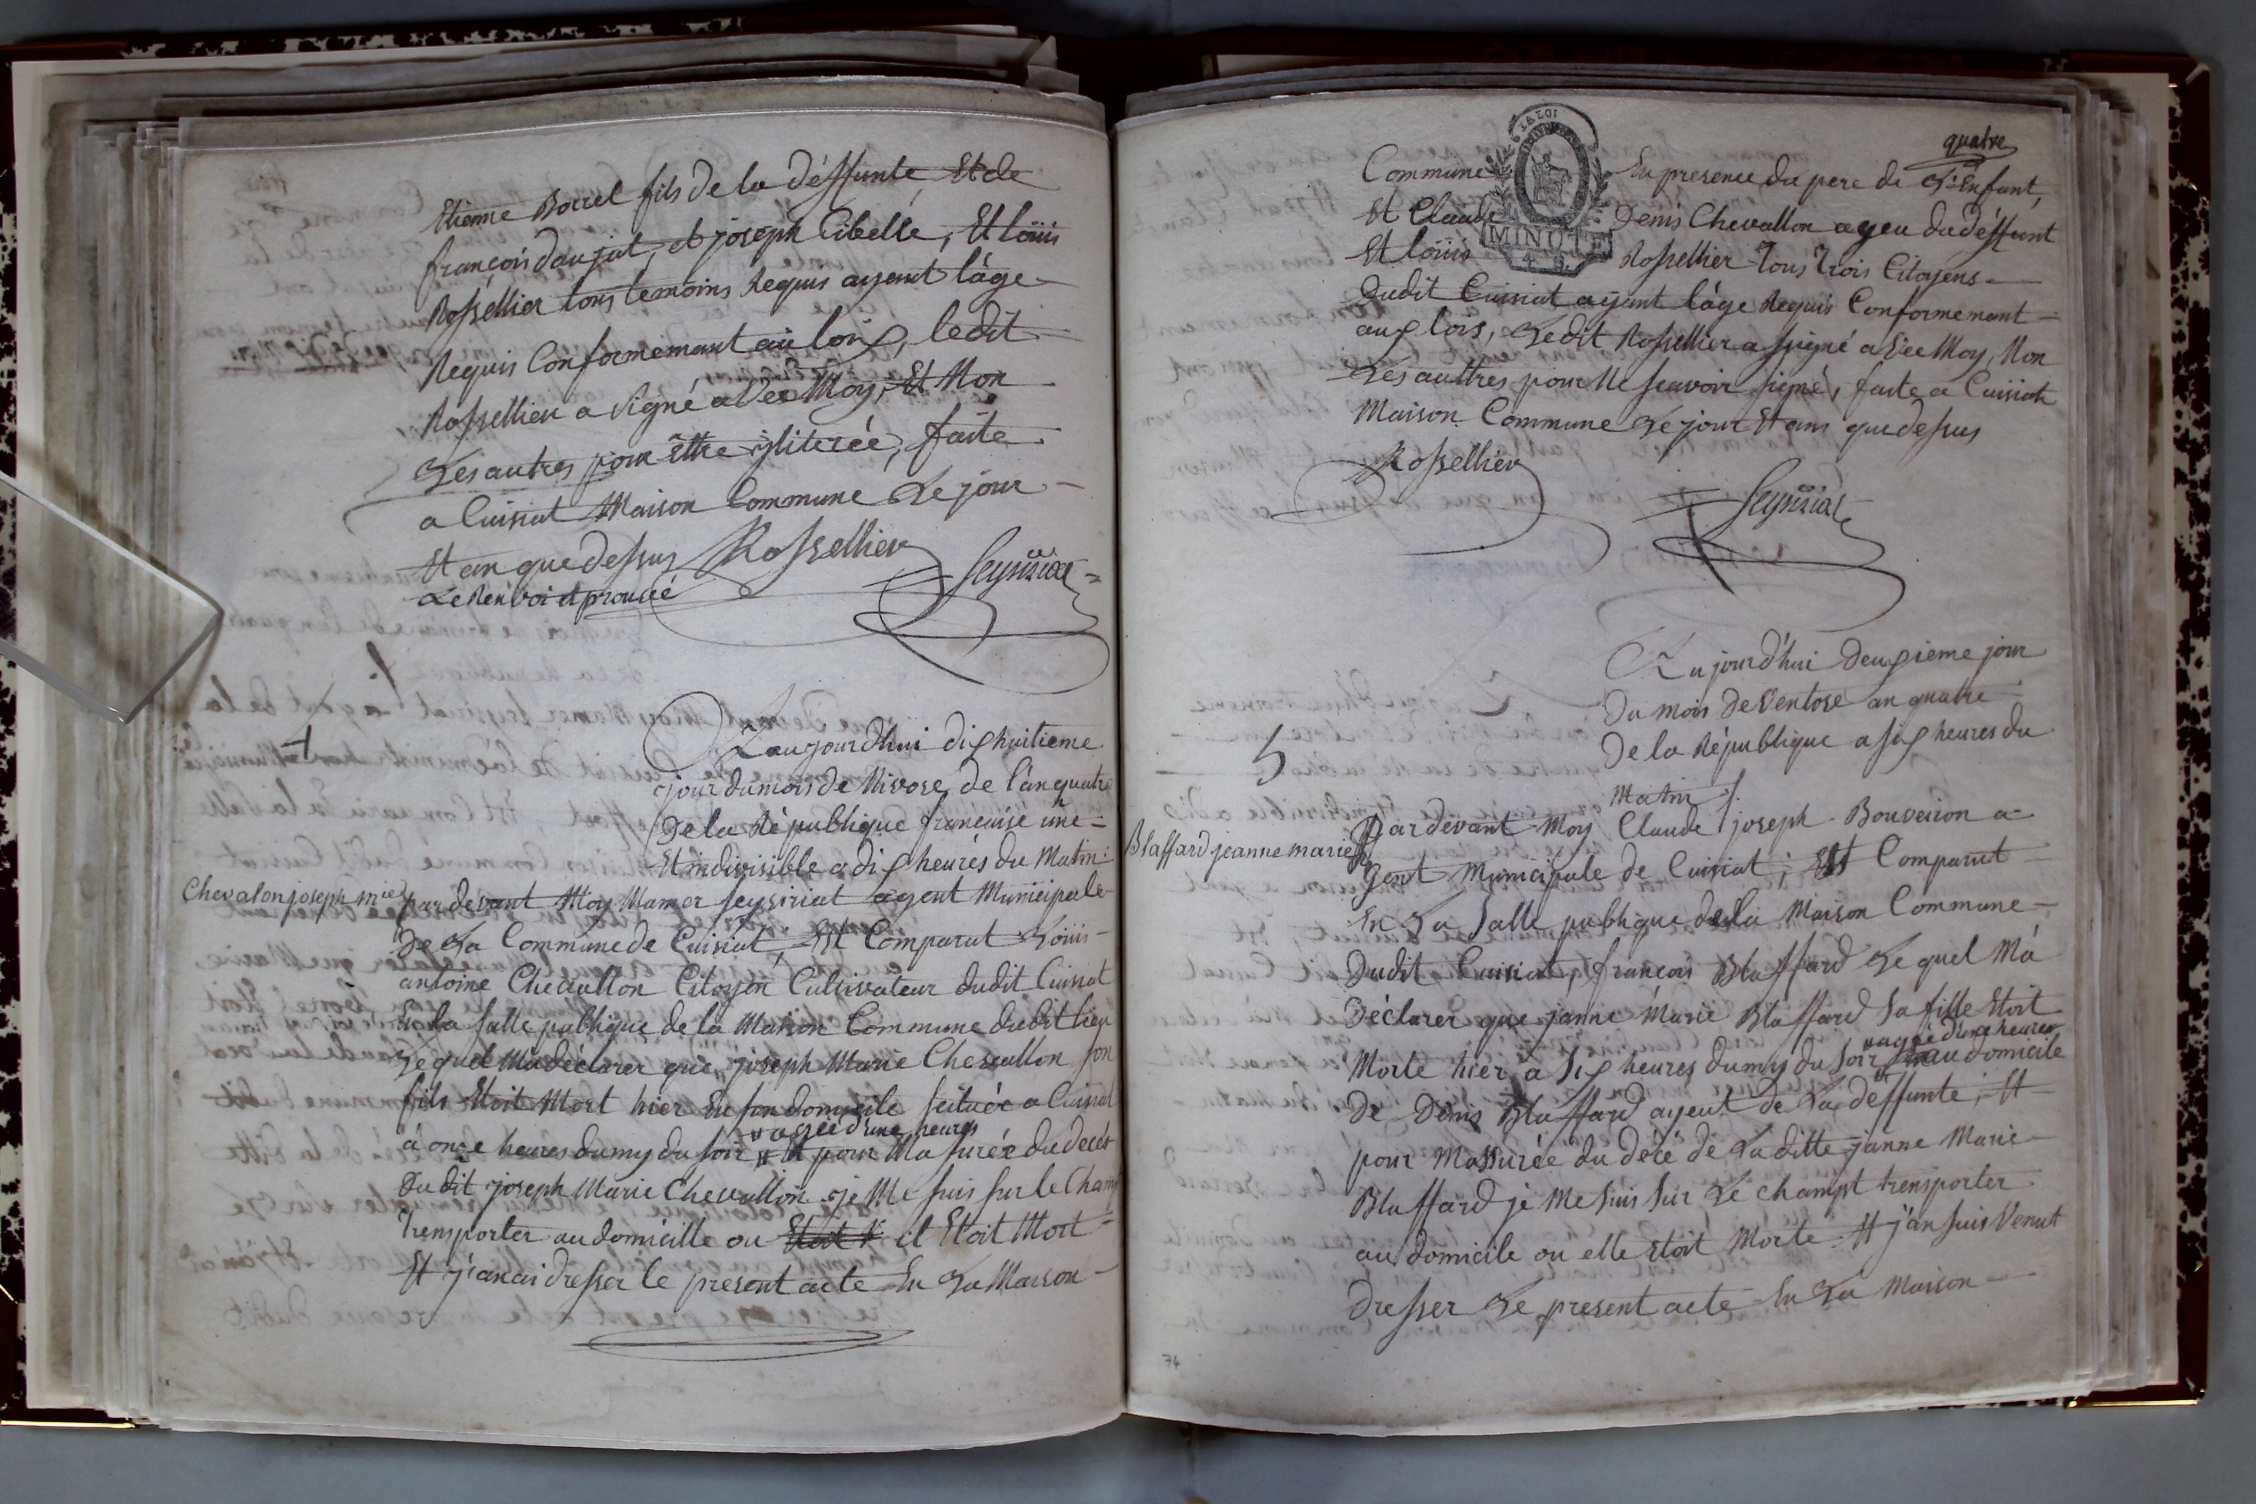 Etienne Borrel fils de la déffunte, Et de
françois daujat, et joseph Cibelle, Et loüis
Rossellier tous temoins Requis ayent l'âge
Requis Conformemant au loix, ledit
Rossellier a signé avec Moy, Et Non
Les autres pour Ettre jlliterée, faite
a Cuisiat Maison Commune Le jour
Et an que dessus Rossellier
Le Renvoi approuvé Seysiriat
4
aujourd'hui dixhuitieme
jour du mois de Nivose, de l'an quatre
De la République francaise une
Et indivisible a dix heures du Matin
Chevalon joseph mie par devant Moy Mamer Seysiriat agent Municipale
De La Commune de Cuisiat, Est Comparut Loüis
antoine Chevallon Citoyen Cultivateur dudit Cuisiat
En la salle publique de la Maison Commune dudit lieu
Lequel Ma déclarer que joseph Marie Chevallon son
fils Etoit Mort hier En son domicile scituée a Cuisiat
agée d'une heures
à onze heures du my du soir Et pour Massurée du decét
Dudit joseph Marie Chevallon je Me suis sur le Champ
Transporter au domicille ou Etoit il Etoit Mort
Et j'anai dresser le present acte En La Maison
quatre
Commune En presence du pere de L'Enfant,
Et Claude Denis Chevallon ayeu du déffunt
Et loüis Rossellier Tous Trois Citoyens
Dudit Cuisiat ayant l'âge Requis Conformemant
aux lois, Ledit Rossellier a signé avec Moy, Non
Les auttres pour Ne scavoir signé, faite a Cuisiat
Maison Commune Le jour Et an que dessus
MINUTE
Rossellier
Seysiriat
aujourd'hui deuxieme jour
Du mois de Ventose an quatre
5 De la République a six heures du
Matin
Blaffard jeanne marie Pardevant Moy Claude joseph Bouveiron a
gent Municipale de Cuisiat; Est Comparut
En La Salle publique de la Maison Commune
Dudit Cuisiat, françois Blaffard Lequel Mà
Déclarer que janne Marie Blaffard Sa fille Etoit
agée d'une heures
Morte hier à Six heures du my du Soir au domicile
De Denis Blaffard ayeut de La déffunte, Et
pour Massurée du décé de Laditte janne Marie
Blaffard je Me Suis Sur Le champt transporter
au domicile ou elle Etoit Morte Et j'an suis Venut
Dresser Le present acte En La Maison
74